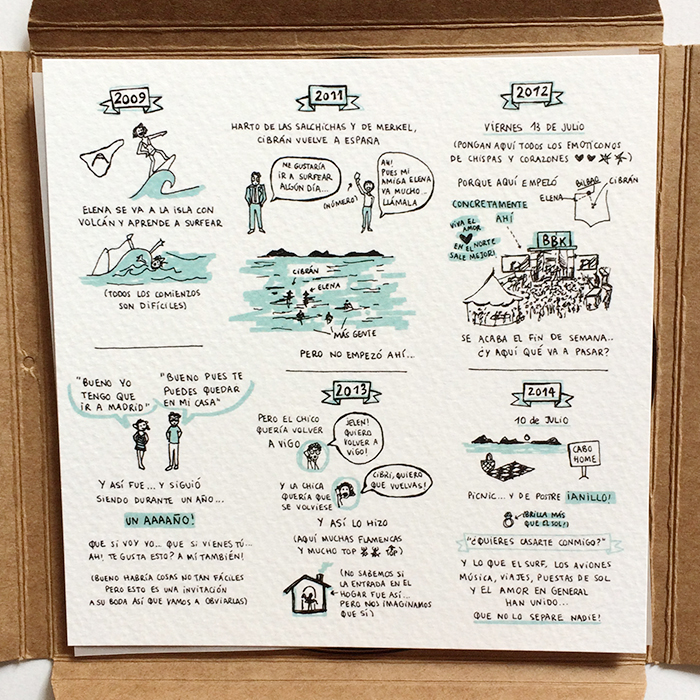 2009
ELENA SE VA A LA ISLA CON
VOLCÁN Y APRENDE A SURFEAR
(TODOS LOS COMIENZOS
SON DIFÍCILES)
2011
HARTO DE LAS SALCHICHAS Y DE MERKEL,
CIBRÁN VUELVE A ESPAÑA
ME GUSTARÍA
IR A SURFEAR
ALGÚN DÍA...
(NÚMERO)
AH!
PUES MI
AMIGA ELENA
VA MUCHO...
LLÁMALA
CIBRÁN
ELENA
MÁS GENTE
PERO NO EMPEZÓ AHÍ...
2012
VIERNES 13 DE JULIO
(PONGAN AQUÍ TODOS LOS EMOTICONOS
DE CHISPAS Y CORAZONES
PORQUE AQUÍ EMPEZÓ
CONCRETAMENTE
AHÍ
BILBAO
CIBRÁN
ELENA
VIVA EL
AMOR
EN EL NORTE
SALE MEJOR!
BBK
SE ACABA EL FIN DE SEMANA...
¿Y AQUÍ QUÉ VA A PASAR?
"BUENO YO
TENGO QUE
IR A MADRID"
"BUENO PUES TE
PUEDES QUEDAR
EN MI CASA"
Y ASÍ FUE... Y SIGUIÓ
SIENDO DURANTE UN AÑO...
UN AAAAÑO!
QUE SI VOY YO... QUE SI VIENES TÚ...
AH!, TE GUSTA ESTO? A MÍ TAMBIÉN!
(BUENO HABRÍA COSAS NO TAN FÁCILES
PERO ESTO ES UNA INVITACIÓN
A SU BODA ASÍ QUE VAMOS A OBVIARLAS)
2013
PERO EL CHICO
QUERÍA VOLVER
A VIGO
JELEN!
QUIERO
VOLVER A
VIGO!
Y LA CHICA
QUERÍA QUE
SE VOLVIESE
CIBRI, QUIERO
QUE VUELVAS!
Y ASÍ LO HIZO
(AQUÍ MUCHAS FLAMENCAS
Y MUCHO TOP
(NO SABEMOS SI
LA ENTRADA EN EL
HOGAR FUE ASÍ...
PERO NOS IMAGINAMOS
QUE SÍ)
2014
10 DE JULIO
CABO
HOME
PICNIC... Y DE POSTRE ¡ANILLO!
¡BRILLA MÁS
QUE EL SOL!
"¿QUIERES CASARTE CONMIGO?"
Y LO QUE EL SURF, LOS AVIONES
MÚSICA, VIAJES, PUESTAS DE SOL
Y EL AMOR EN GENERAL
HAN UNIDO...
QUE NO LO SEPARE NADIE!